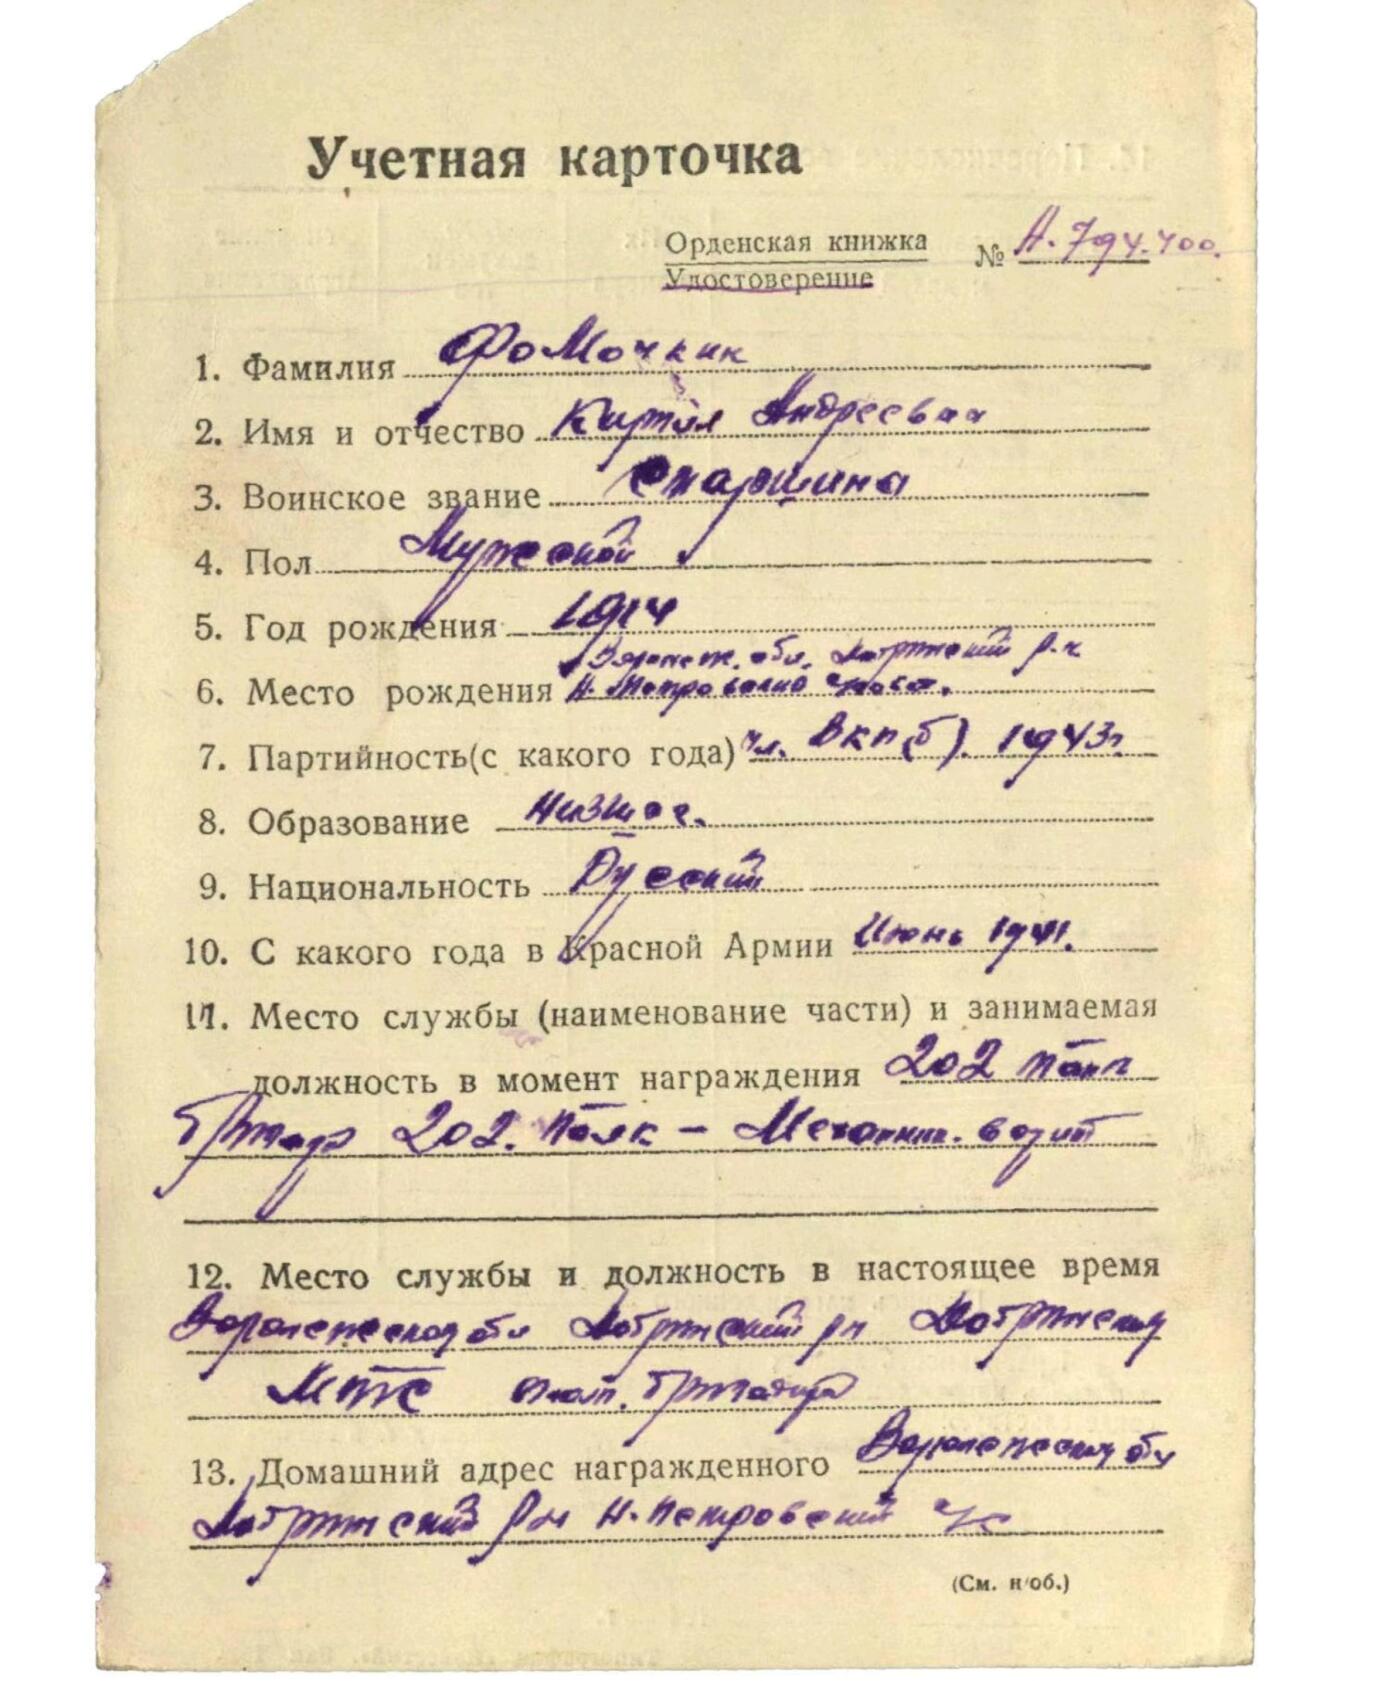 Учетная карточка
Орденская книжка № А.794.400.
Удостоверение
1. Фамилия Фомочкин
2. Имя и отчество Андреевич
3. Воинское звание старшина
4. Пол Мужской
5. Год рождения 1914
Воронеж. обл. Добринский р-н
6. Место рождения Н.
7. Партийность (с какого года) чл. ВКП(б). 1943 г.
8. Образование Низшее.
9. Национальность Русский
10. С какого года в Красной Армии Июнь 1941.
11. Место службы (наименование части) и занимаемая
должность в момент награждения 202
202. – Механик. водит
12. Место службы и должность в настоящее время
Воронежская обл Добринский рн Добринская
МТС пом. бригадира
13. Домашний адрес награжденного Воронежская обл
Добринский рн Н-Петровский с/с
(См. н/об.)